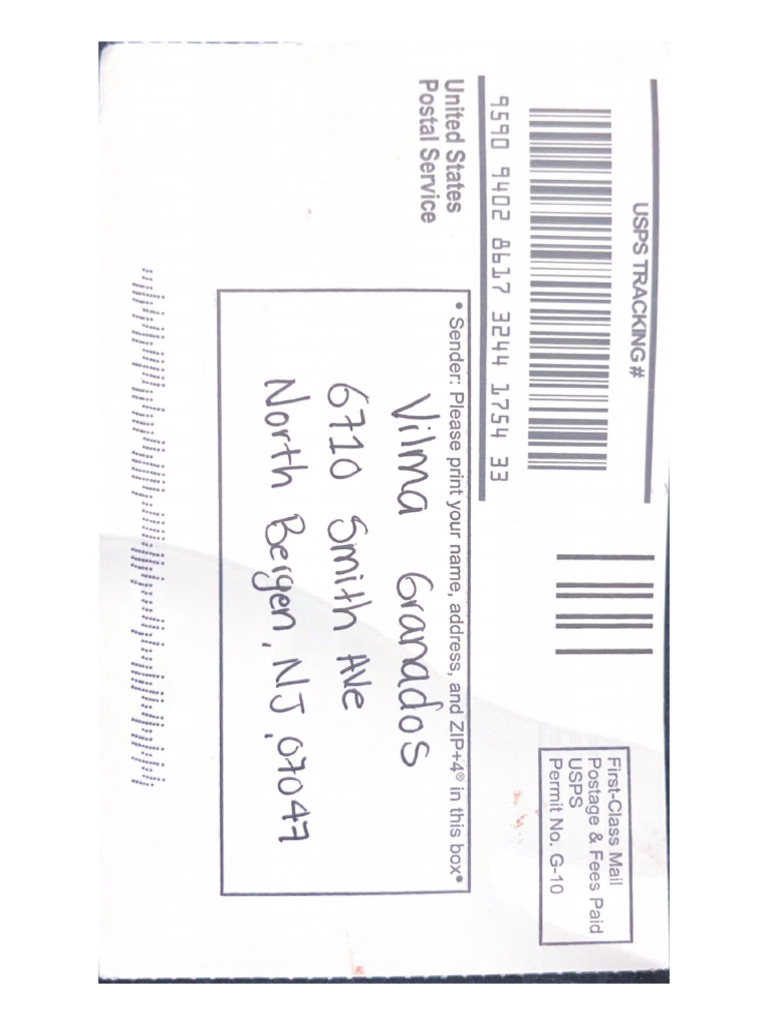 USPS TRACKING #
9590 9402 8617 3244 1754 33
First-Class Mail
Postage & Fees Paid
USPS
Permit No. G-10
United States
Postal Service
• Sender: Please print your name, address, and ZIP+4® in this box•
Vilma Granados
6710 Smith Ave
North Bergen, NJ, 07047